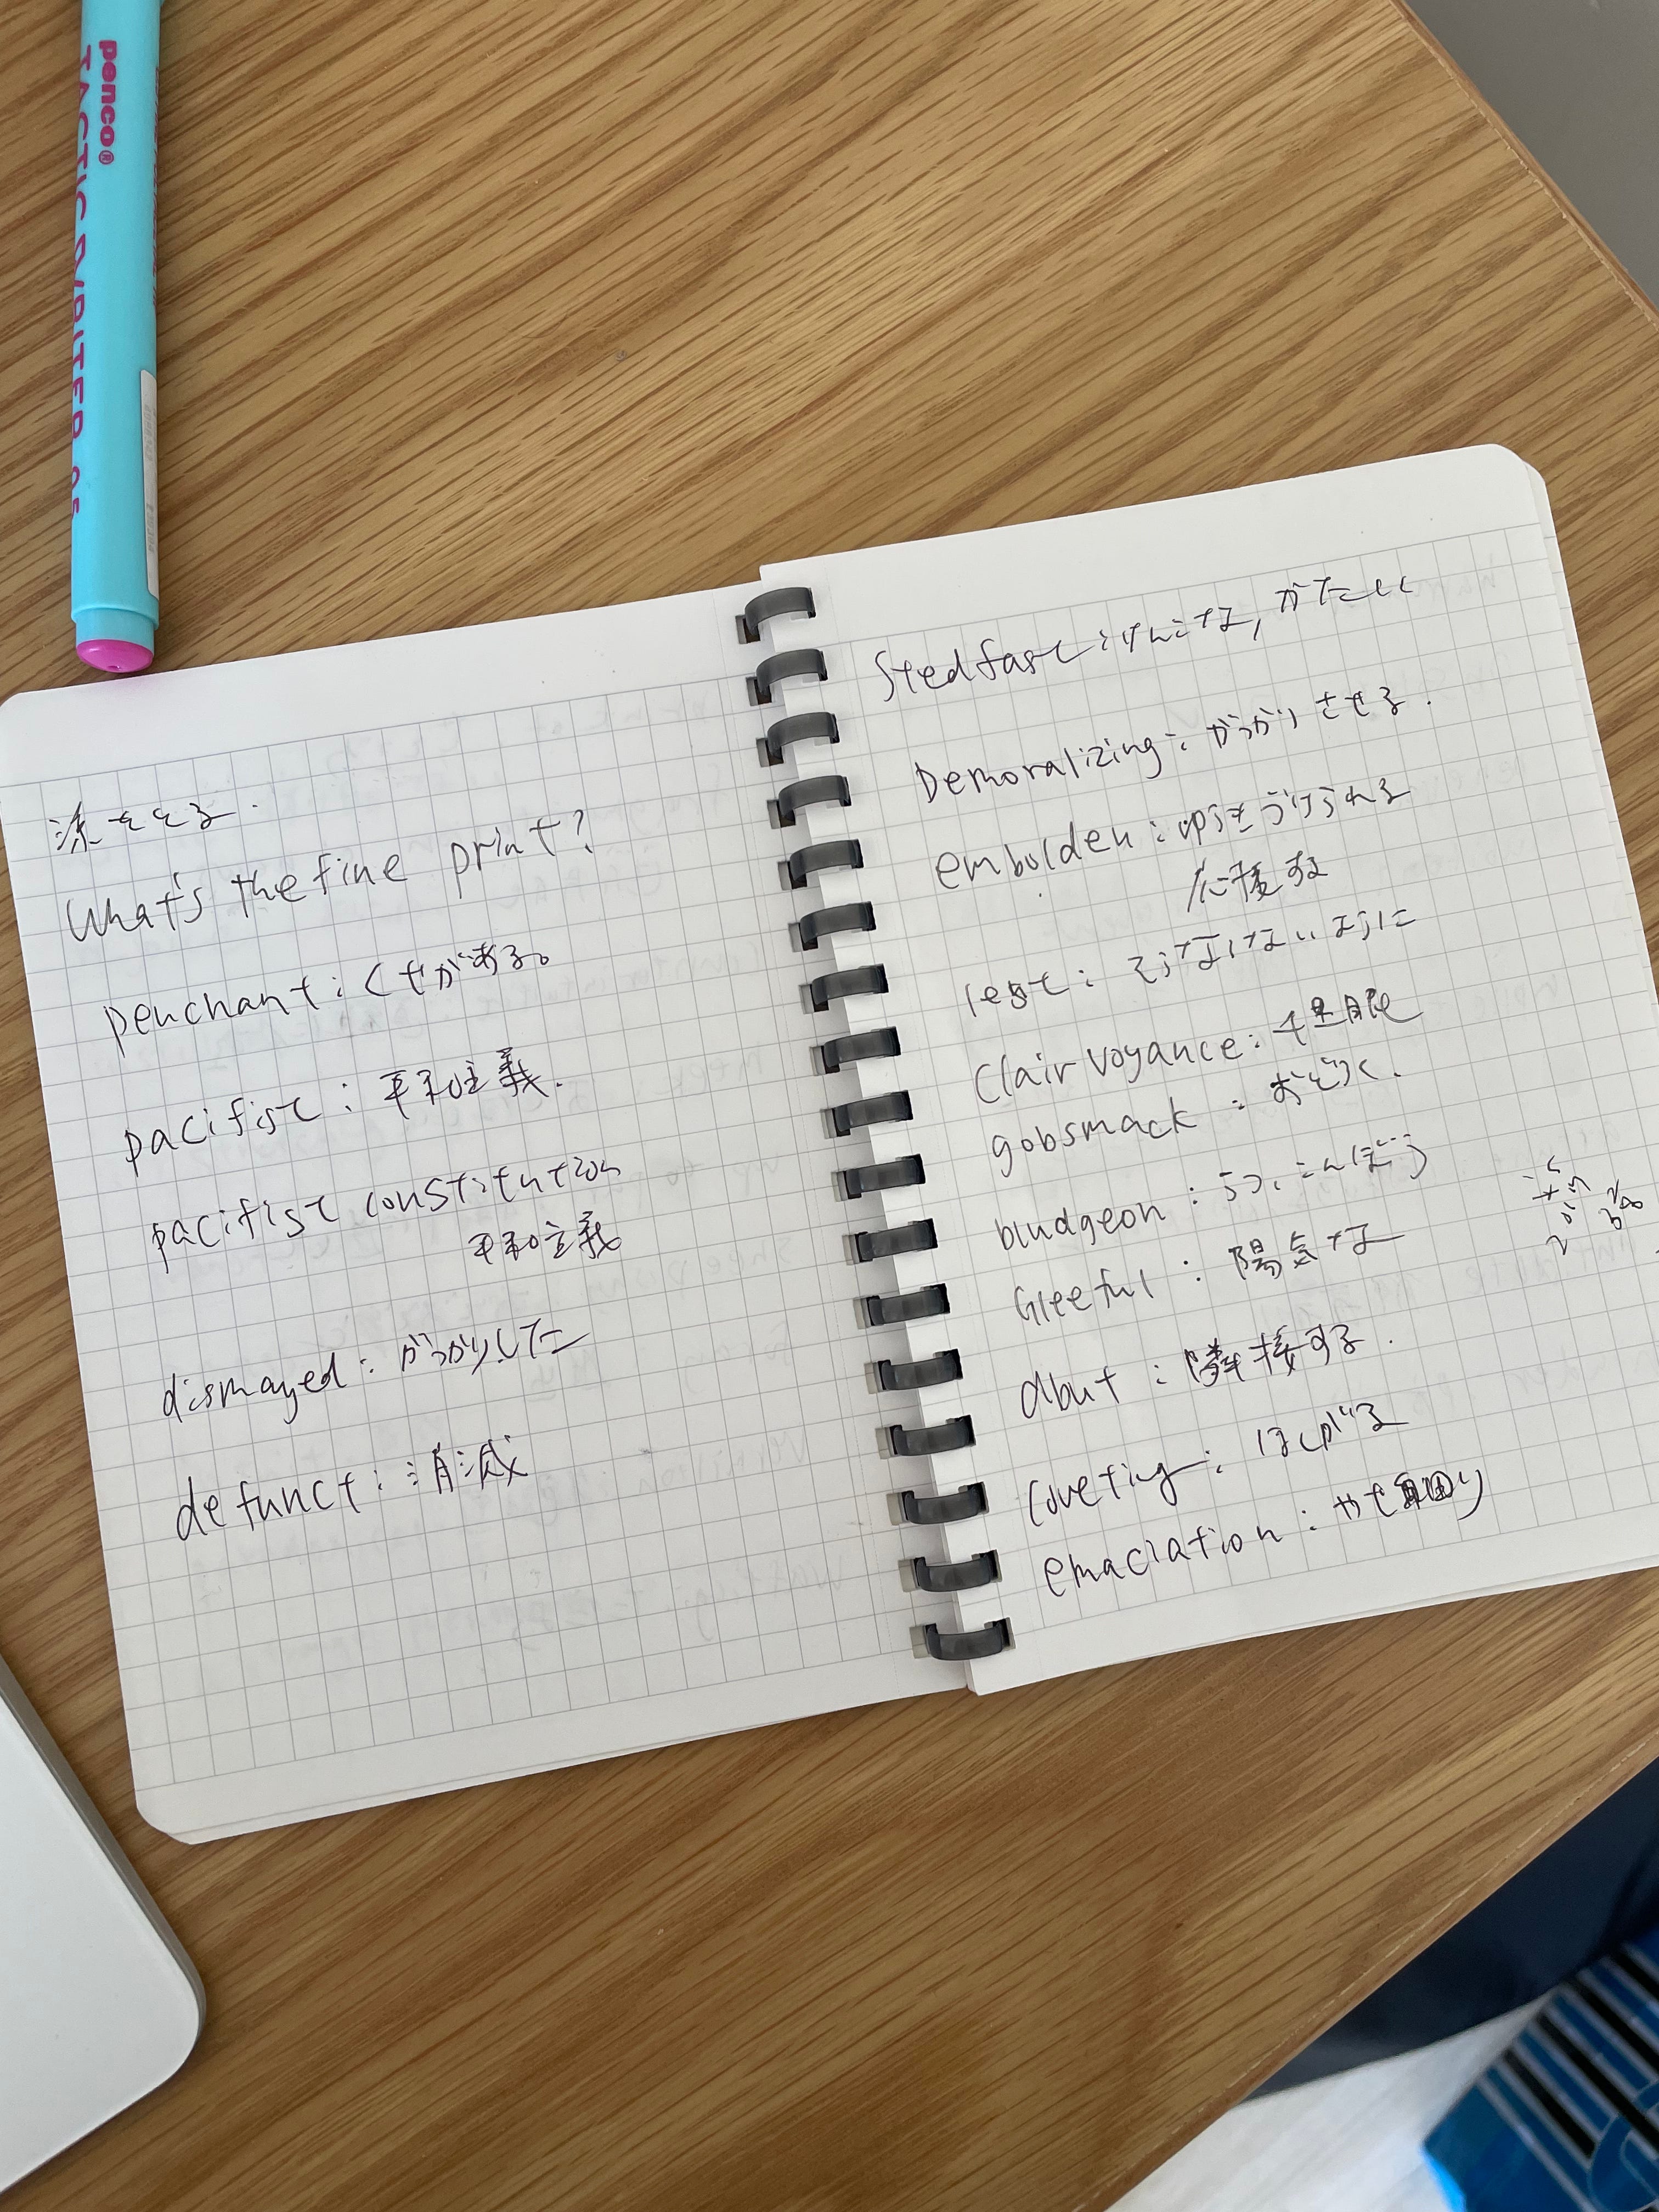 penco®
TACTIC WRITER 05
涼をとる.
What's the fine print?
penchant: くせがある。
pacifist: 平和主義.
pacifist constitution
平和主義
dismayed: がっかりした
defunct: 消滅
Stedfast: けんこな, かたい
Demoralizing: がっかりさせる.
embolden: ゆうきづけられる
応援する
lest: そうなもないように
Clairvoyance: 千里眼
gobsmack: おどろく.
bludgeon: うつ, こんぼう
Gleeful: 陽気な
abut: 隣接する.
Coveting: ほしがる
emaciation: やせ細り